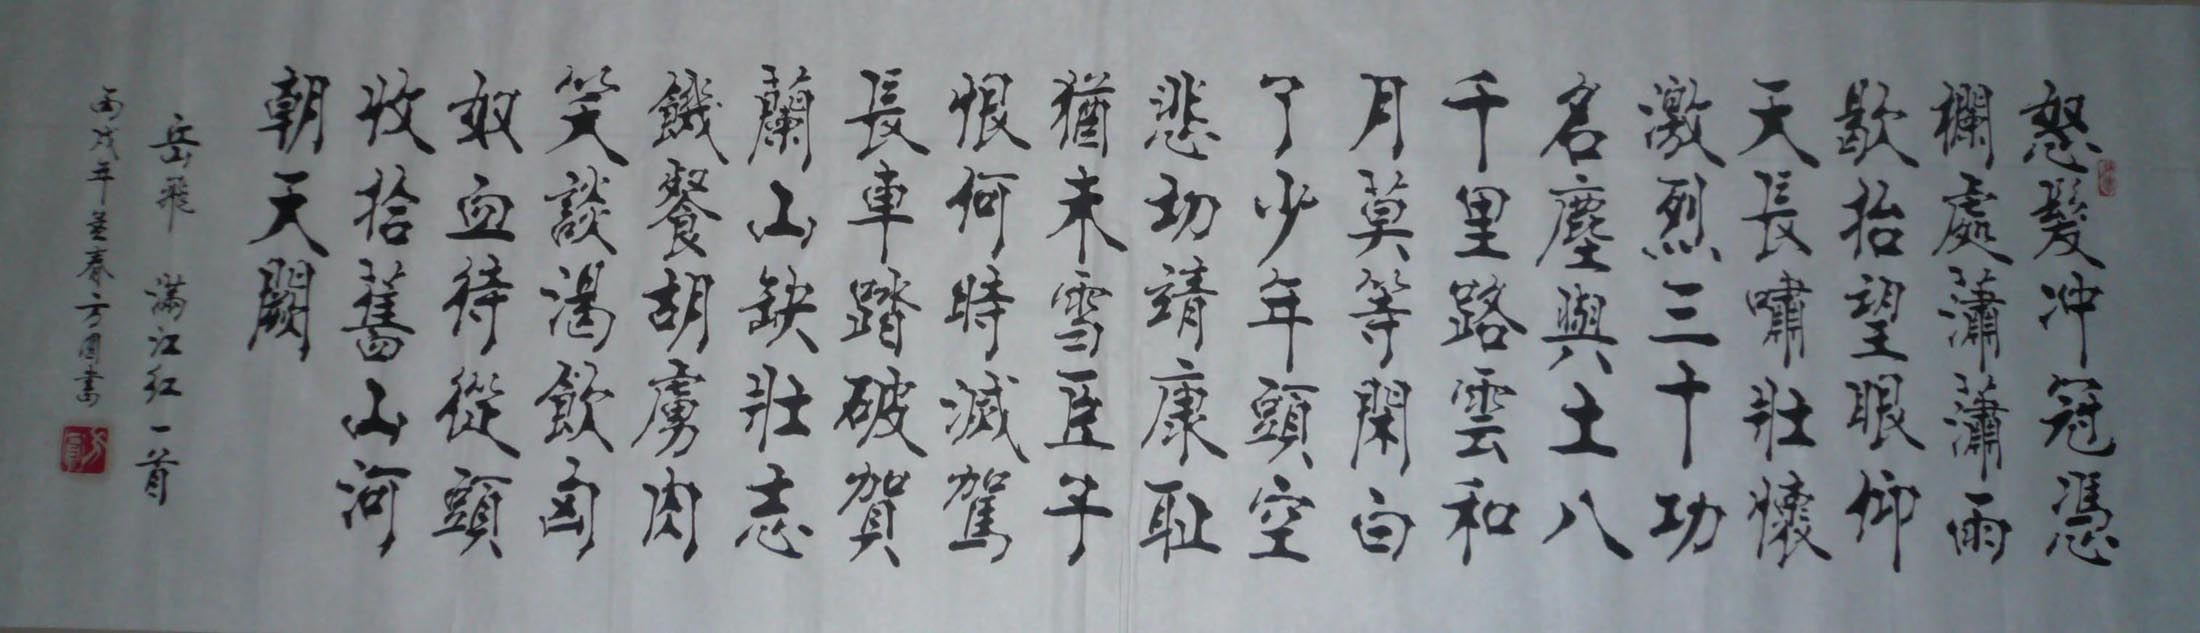 怒髮冲冠憑
欄處瀟瀟雨
歇抬望眼仰
天長嘯壯懷
激烈三十功
名塵與土八
千里路雲和
月莫等閑白
了少年頭空
悲切靖康耻
猶未雪臣子
恨何時滅駕
長車踏破賀
蘭山缺壯志
饑餐胡虜肉
笑談渴飲匈
奴血待從頭
收拾舊山河
朝天闕
岳飛 滿江紅一首
丙戌年孟春方圓書